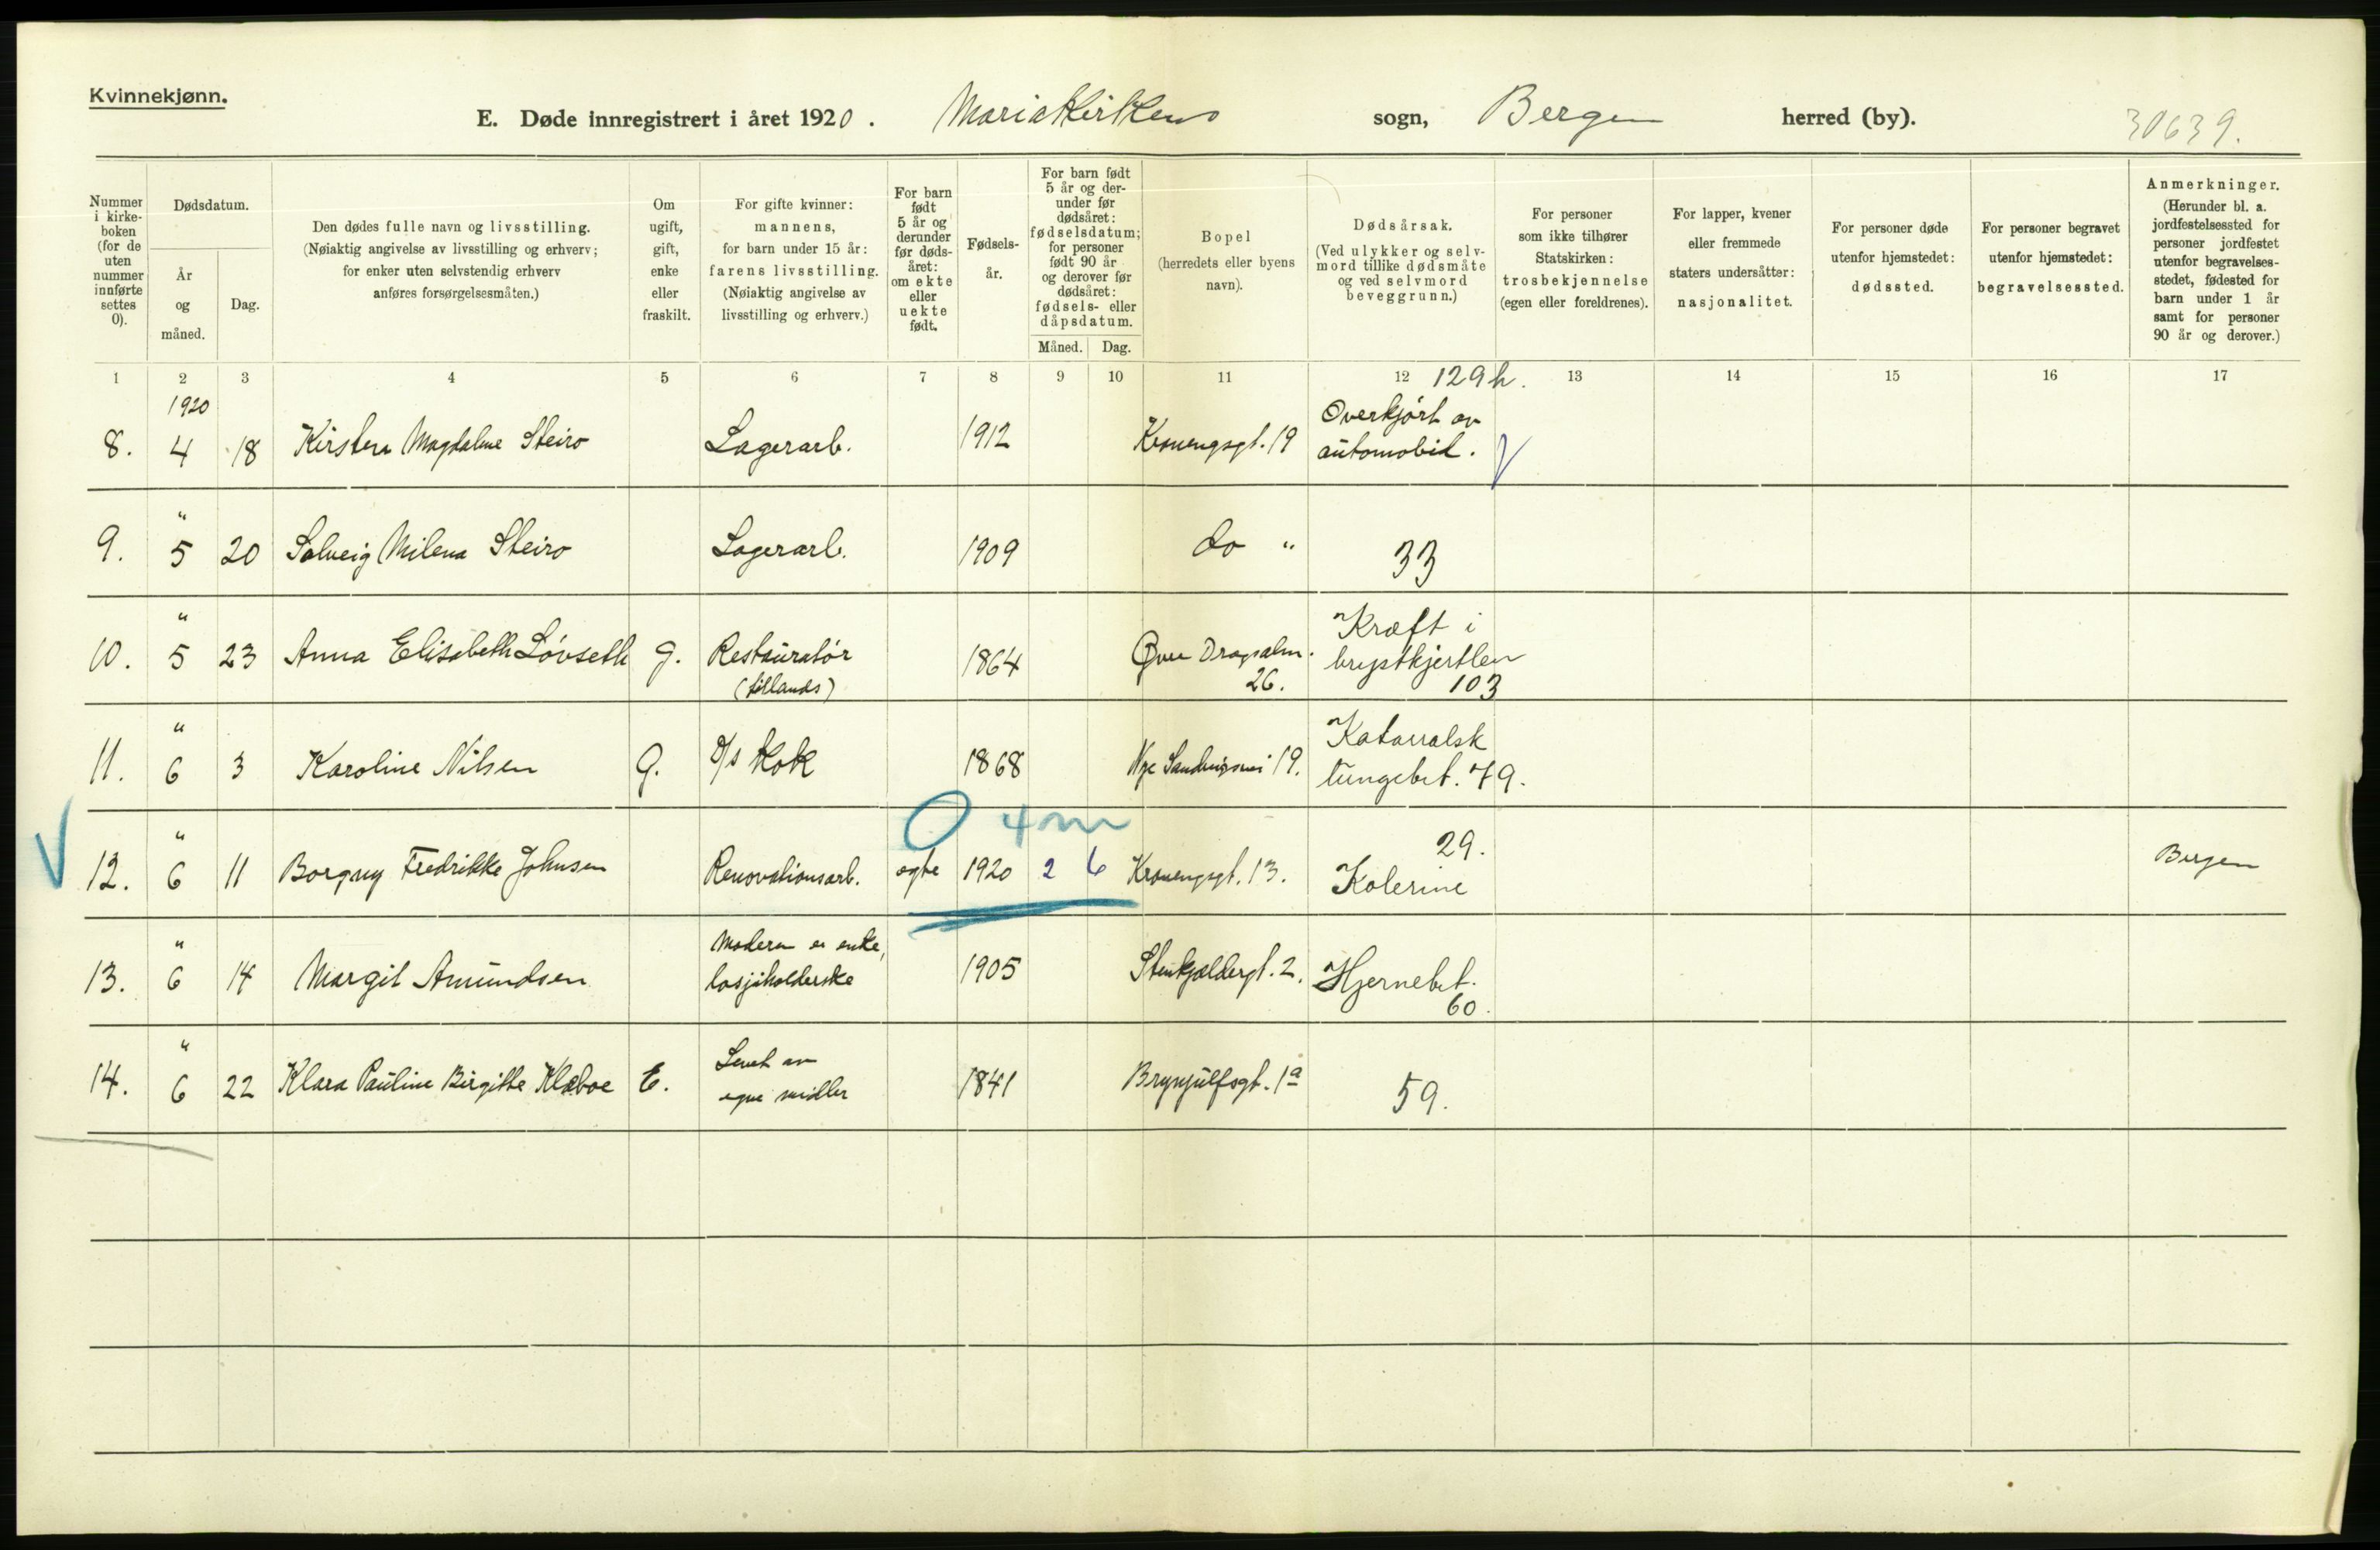 Kvinnekjønn.
E. Døde innregistrert i året 1920. Mariakirkens sogn, Bergen herred (by). 30639.
Nummer i kirke-boken (for de uten nummer innførte settes 0).
Dødsdatum.
År og måned.
Dag.
Den dødes fulle navn og livsstilling.
(Nøiaktig angivelse av livsstilling og erhverv;
for enker uten selvstendig erhverv
anføres forsørgelsesmåten.)
Om ugift, gift, enke eller fraskilt.
For gifte kvinner:
mannens,
for barn under 15 år:
farens livsstilling.
(Nøiaktig angivelse av
livsstilling og erhverv.)
For barn født 5 år og derunder før døds-året: om ekte eller uekte født.
Fødsels-år.
For barn født 5 år og der-under før dødsåret: fødselsdatum; for personer født 90 år og derover før dødsåret: fødsels- eller dåpsdatum.
Måned. Dag.
Bopel
(herredets eller byens
navn).
Dødsårsak.
(Ved ulykker og selv-
mord tillike dødsmåte
og ved selvmord
beveggrunn.)
For personer
som ikke tilhører
Statskirken:
trosbekjennelse
(egen eller foreldrenes).
For lapper, kvener
eller fremmede
staters undersåtter:
nasjonalitet.
For personer døde
utenfor hjemstedet:
dødssted.
For personer begravet
utenfor hjemstedet:
begravelsessted.
Anmerkninger.
(Herunder bl. a.
jordfestelsessted for
personer jordfestet
utenfor begravelses-
stedet, fødested for
barn under 1 år
samt for personer
90 år og derover.)
1 2 3 4 5 6 7 8 9 10 11 12 129h. 13 14 15 16 17
1920
8. 4 18 Kirsten Magdalene Steiro Lagerarb. 1912 Kroengsgt. 19 Overkjørt av
automobil.
"
9. 5 20 Solveig Milena Steiro Lagerarb. 1909 do " 33
"
10. 5 23 Anna Elisabeth Løvseth g. Restauratør 1864 Øvre Dragsalm. Kræft i
brystkjertlen
(tillands) 26. 103
"
11. 6 3 Karoline Nilsen g. D/s kok 1868 Nye Sandviksvei 19. Katarralsk
lungebet. 79.
O 4m
"
12. 6 11 Borgny Fredrikke Johnsen Renovationsarb. egte 1920 2 6 Kroengsgt. 13. 29.
Kolerine Bergen
"
13. 6 14 Margit Amundsen Moderen er enke,
losjiholderske 1905 Stenkjeldergt. 2. Hjernebet.
60.
"
14. 6 22 Klara Pauline Birgitte Klæboe E. Levet av
egne midler 1841 Brynjulfsgt. 1a 59.